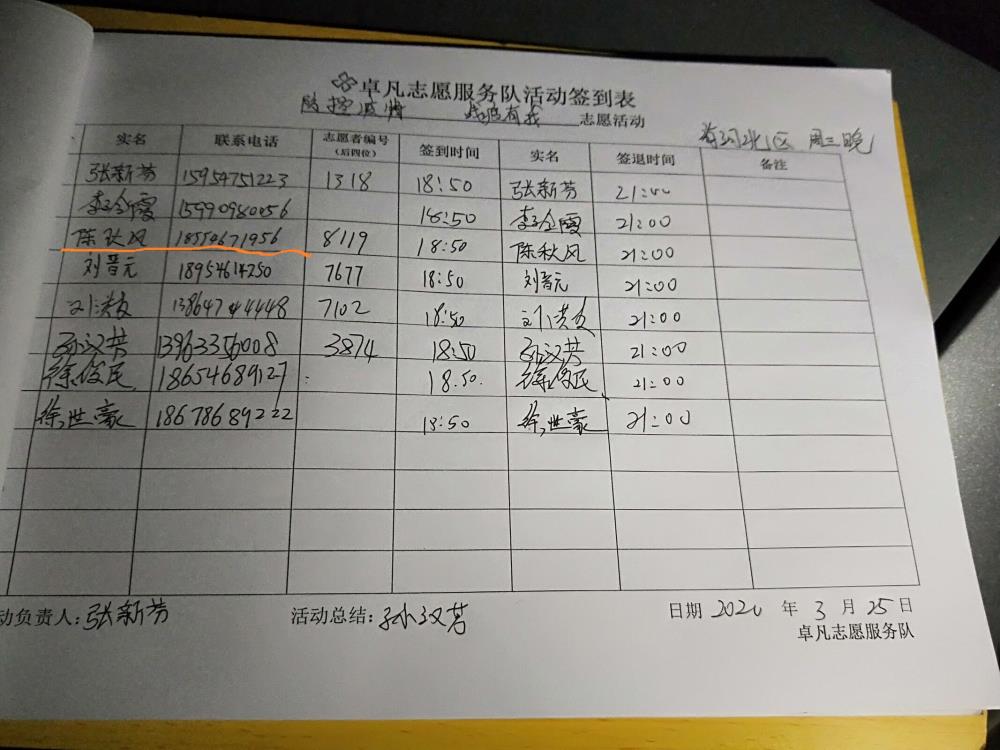 卓凡志愿服务队活动签到表
防控疫情 战疫有我 志愿活动
河北区 周三晚
实名 联系电话 志愿者编号（后四位） 签到时间 实名 签退时间 备注
张新芳 15954751223 1318 18:50 张新芳 21:00
李金霞 15990980056 18:50 李金霞 21:00
陈秋风 18554671956 8119 18:50 陈秋风 21:00
刘晋元 18954614250 7677 18:50 刘晋元 21:00
刘洪友 7102 18:50 刘洪友 21:00
孙汉芸 13963356008 3874 18:50 孙汉芸 21:00
徐俊民 18654689127 18.50. 徐俊民 21:00
徐世豪 18678689222 18:50 徐世豪 21:00
动负责人:张新芳 活动总结:孙汉芸 日期 2020 年 3 月 25 日
卓凡志愿服务队